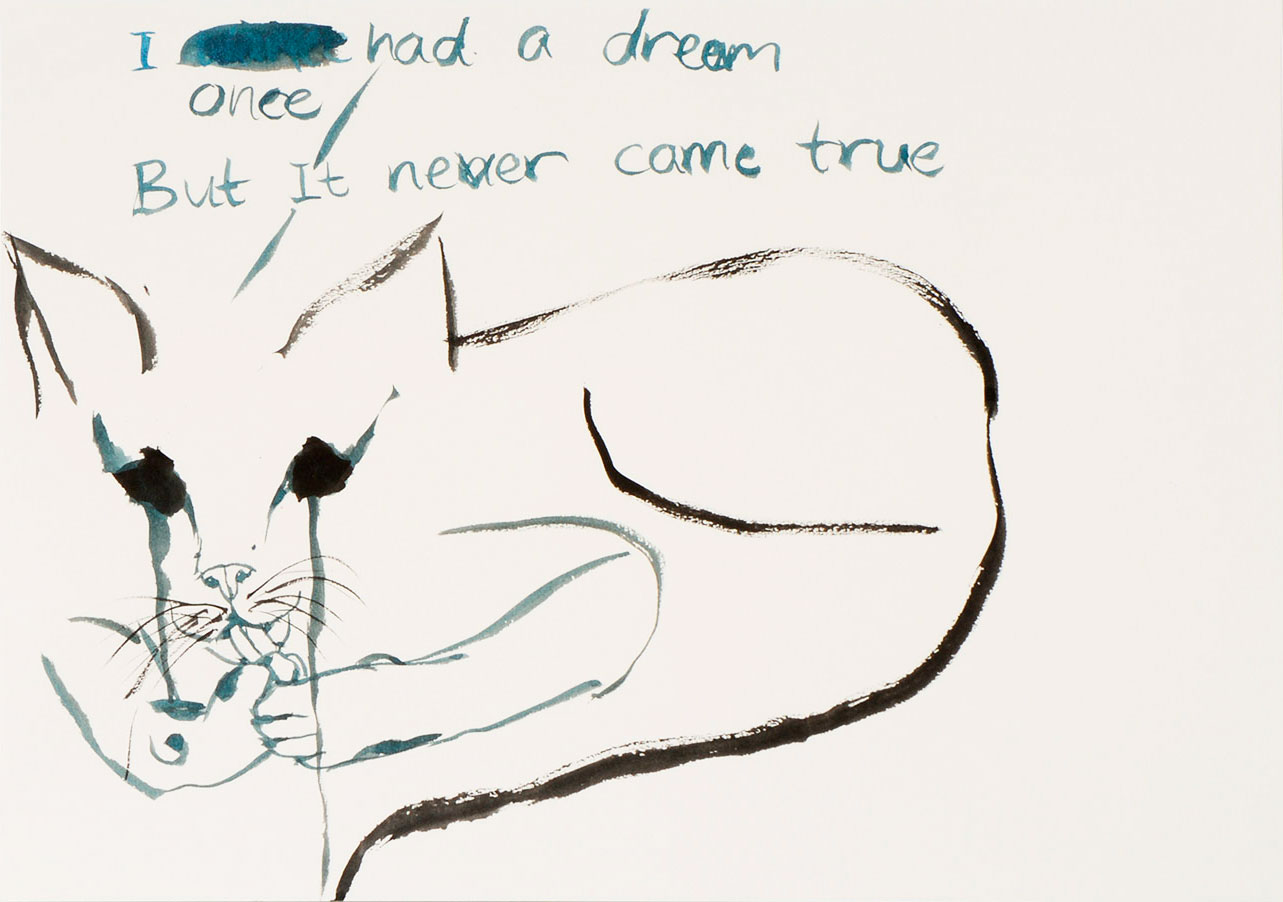 I had a dream
once
But It never came true